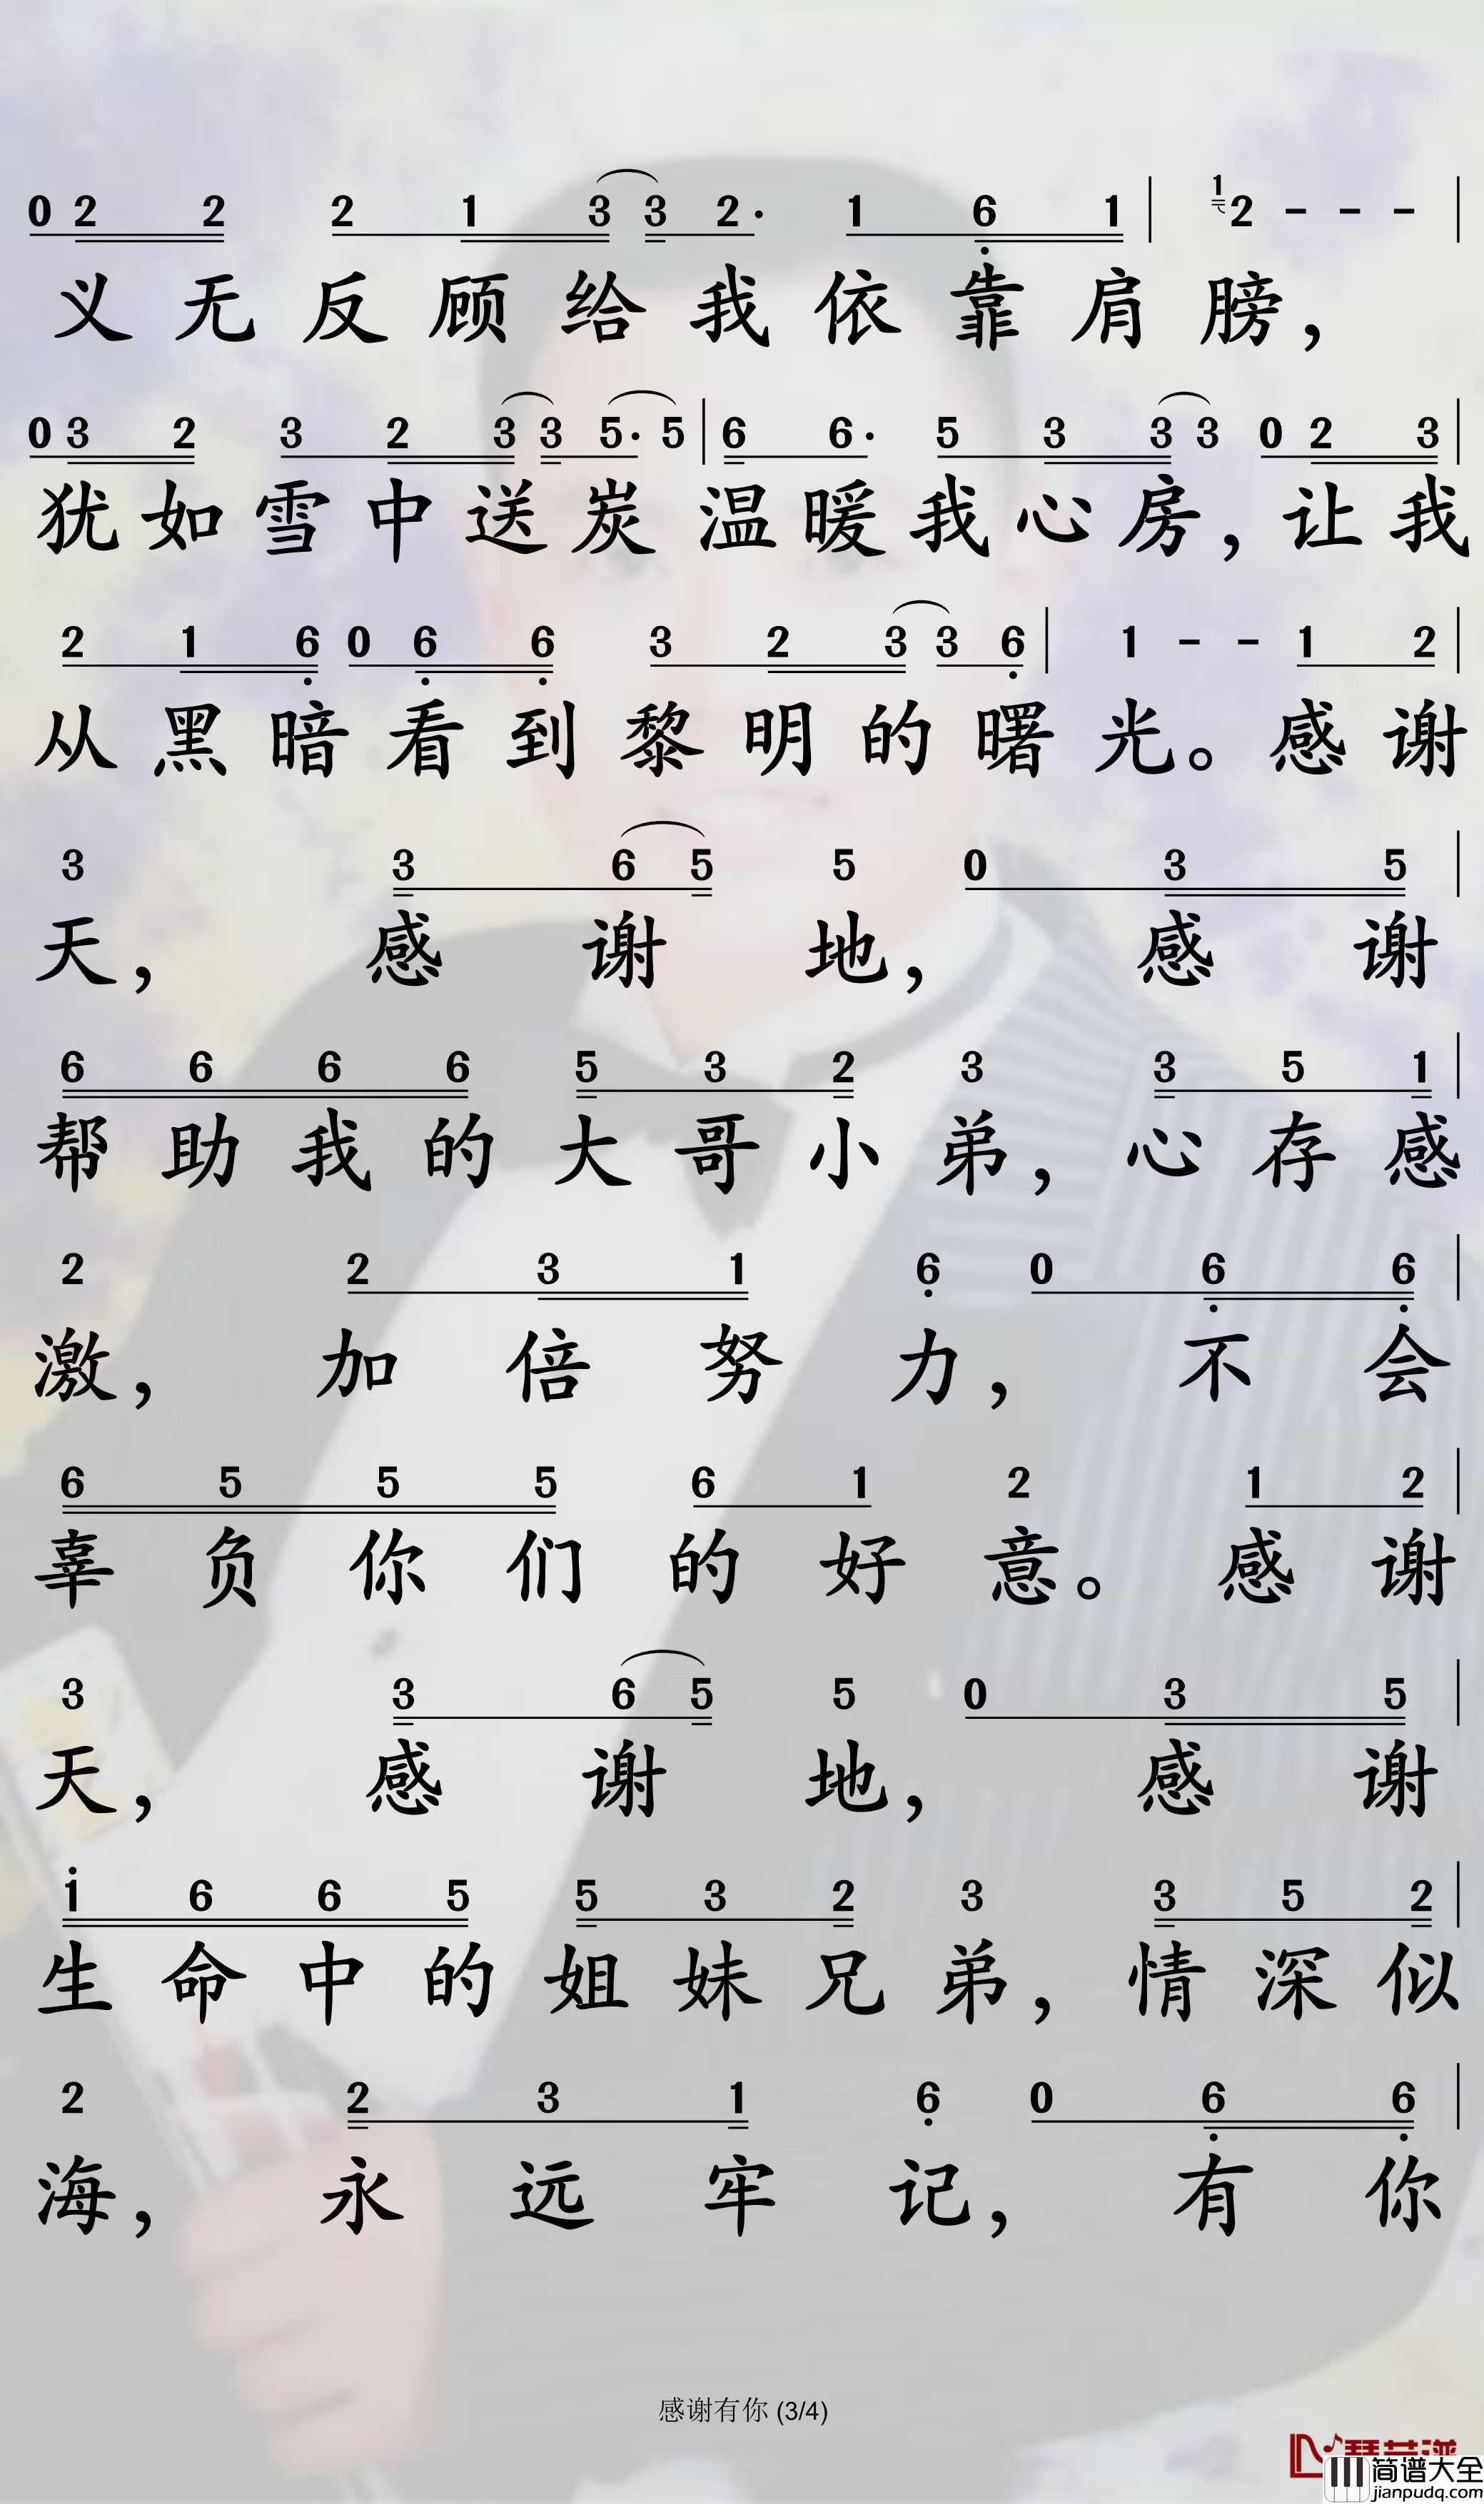 0 2 2 2 1 3 3 2· 1 6 1 | 1 2 - - - |
义无反顾给我依靠肩膀，
0 3 2 3 2 3 3 5· 5 | 6 6· 5 3 3 3 0 2 3 |
犹如雪中送炭温暖我心房，让我
2 1 6 0 6 6 3 2 3 3 6 | 1 - - 1 2 |
从黑暗看到黎明的曙光。感谢
3 3 6 5 5 0 3 5 |
天，感谢地，感谢
6 6 6 6 5 3 2 3 3 5 1 |
帮助我的大哥小弟，心存感
2 2 3 1 6 0 6 6 |
激，加倍努力，不会
6 5 5 5 6 1 2 1 2 |
辜负你们的好意。感谢
3 3 6 5 5 0 3 5 |
天，感谢地，感谢
i 6 6 5 5 3 2 3 3 5 2 |
生命中的姐妹兄弟，情深似
2 2 3 1 6 0 6 6 |
海，永远牢记，有你
感谢有你 (3/4)
简谱大全
jianpudq.com